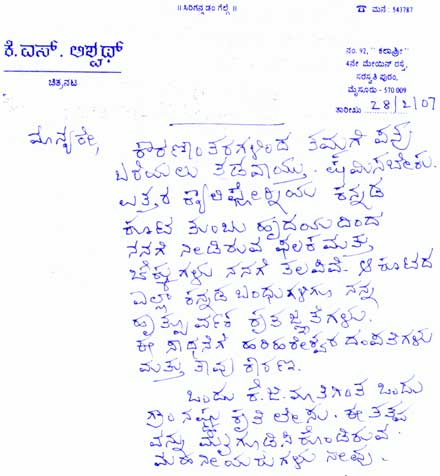 ॥ ಸಿರಿಗನ್ನಡಂ ಗೆಲ್ಗೆ ॥
☎ ಮನೆ : 543787
ಕೆ. ಎಸ್. ಅಶ್ವಥ್
ಚಿತ್ರನಟ
ನಂ. 92, " ಕಲಾಶ್ರೀ "
4ನೇ ಮೇಯಿನ್ ರಸ್ತೆ,
ಸರಸ್ವತಿ ಪುರಂ,
ಮೈಸೂರು - 570 009
ತಾರೀಖು 28/2/07
ಮಾನ್ಯರೇ,
ಕಾರಣಾಂತರಗಳಿಂದ ತಮಗೆ ಪತ್ರ
ಬರೆಯಲು ತಡವಾಯ್ತು. ಕ್ಷಮಿಸಬೇಕು.
ಉತ್ತರ ಕ್ಯಾಲಿಫೋರ್ನಿಯ ಕನ್ನಡ
ಕೂಟ ತುಂಬು ಹೃದಯದಿಂದ
ನನಗೆ ನೀಡಿರುವ ಫಲಕ ಮತ್ತು
ಚೆಕ್ಕುಗಳು ನನಗೆ ತಲಪಿವೆ. ಆ ಕೂಟದ
ಎಲ್ಲಾ ಕನ್ನಡ ಬಂಧುಗಳಿಗೂ ನನ್ನ
ಹೃತ್ಪೂರ್ವಕ ಕೃತಜ್ಞತೆಗಳು.
ಈ ಸಾಧನೆಗೆ ಹರಿಹರೇಶ್ವರ ದಂಪತಿಗಳು
ಮತ್ತು ತಾವು ಕಾರಣ.
ಒಂದು ಕೆ.ಜಿ. ಮಾತಿಗಿಂತ ಒಂದು
ಗ್ರಾಂನಷ್ಟು ಕೃತಿ ಲೇಸು. ಈ ತತ್ವ
ವನ್ನು ಮೈಗೂಡಿಸಿಕೊಂಡಿರುವ
ಮಹನೀಯರುಗಳು ನೀವು.